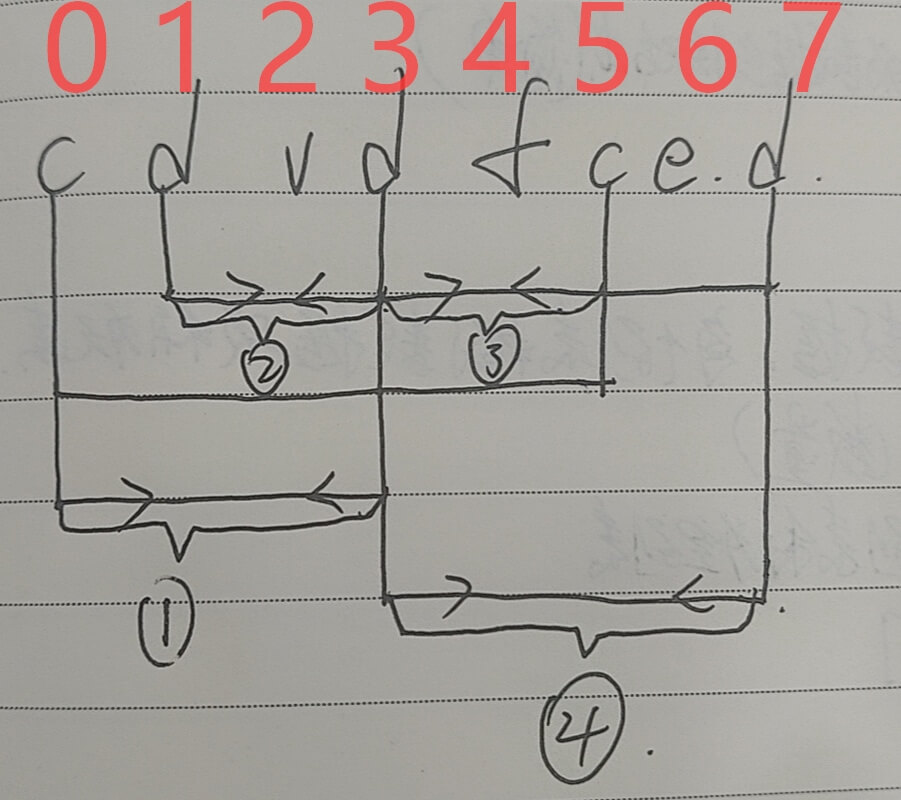 0 1 2 3 4 5 6 7
c d v d f c e. d.
② ③
①
④.